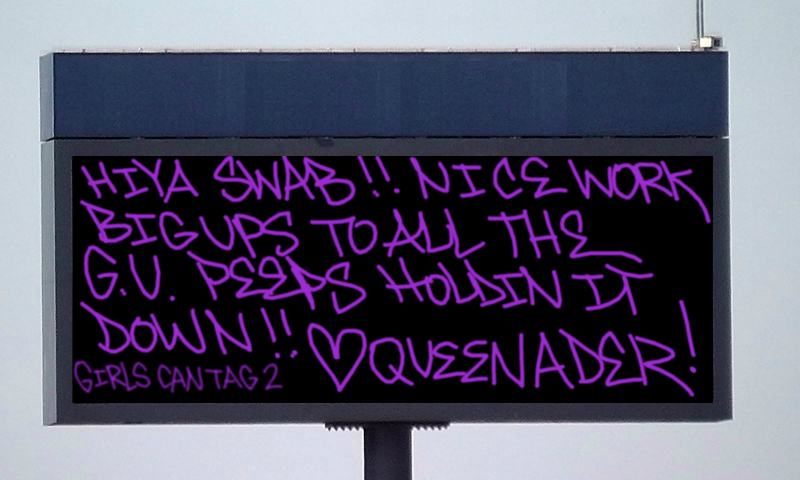 HIYA SWAB!! NICE WORK
BIG UPS TO ALL THE
G.U. PEEPS HOLDIN IT
DOWN!! ♡QUEENADER!
GIRLS CAN TAG 2